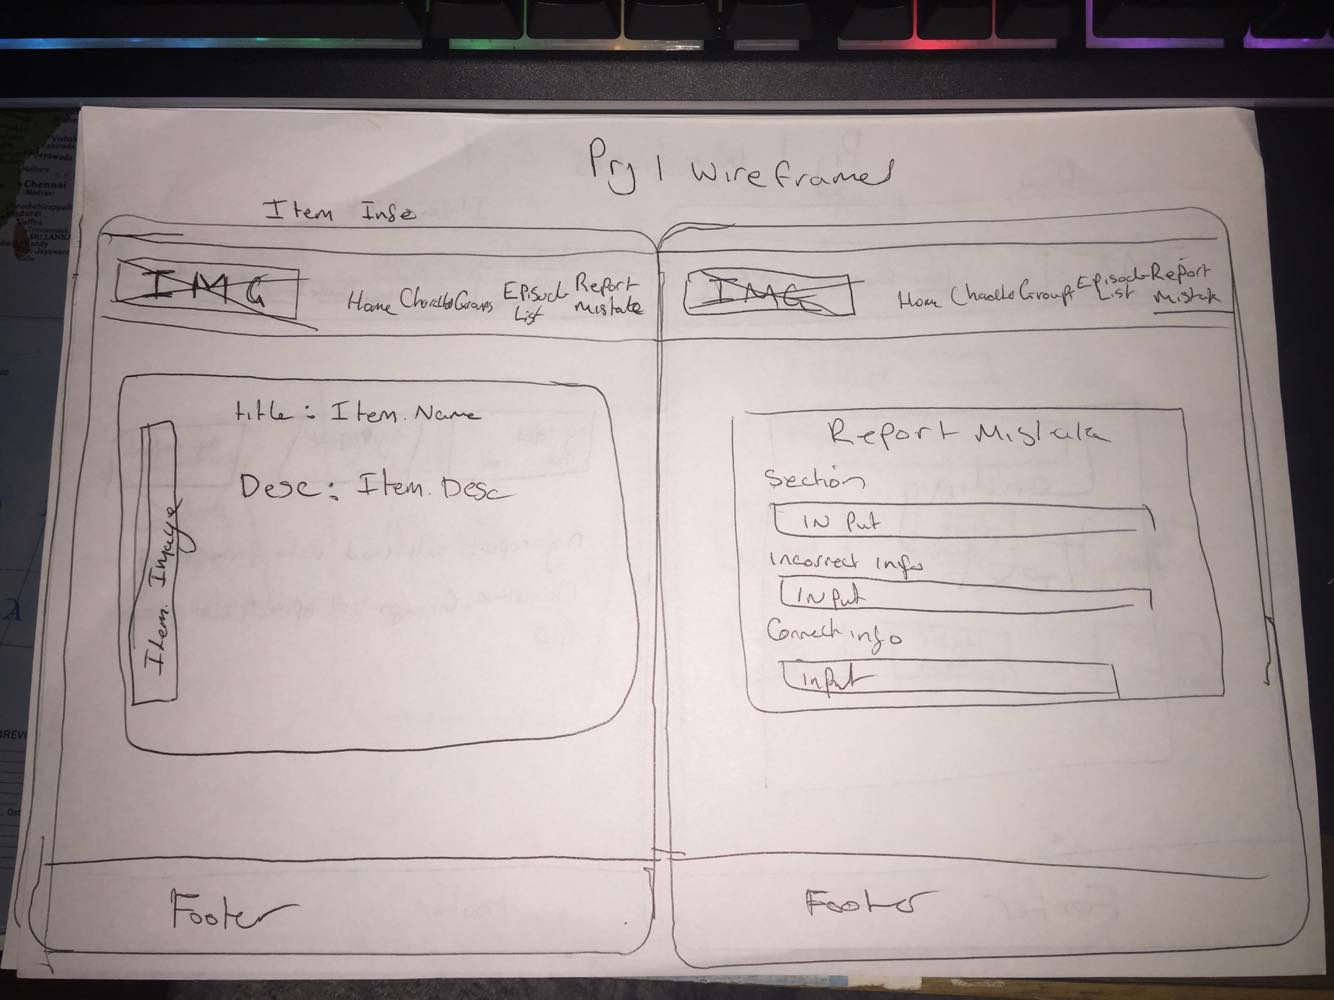 Prj 1 Wireframes
Item Info
IMG
Home
Groups
Episode List
Report Mistake
title : Item.Name
Desc : Item.Desc
Item.Image
Footer
IMG
Home
Groups
Episode List
Report Mistake
Report Mistake
Section
INput
Incorrect info
INput
Correct info
input
Footer
Chennai
(Madras)
SRI LANKA